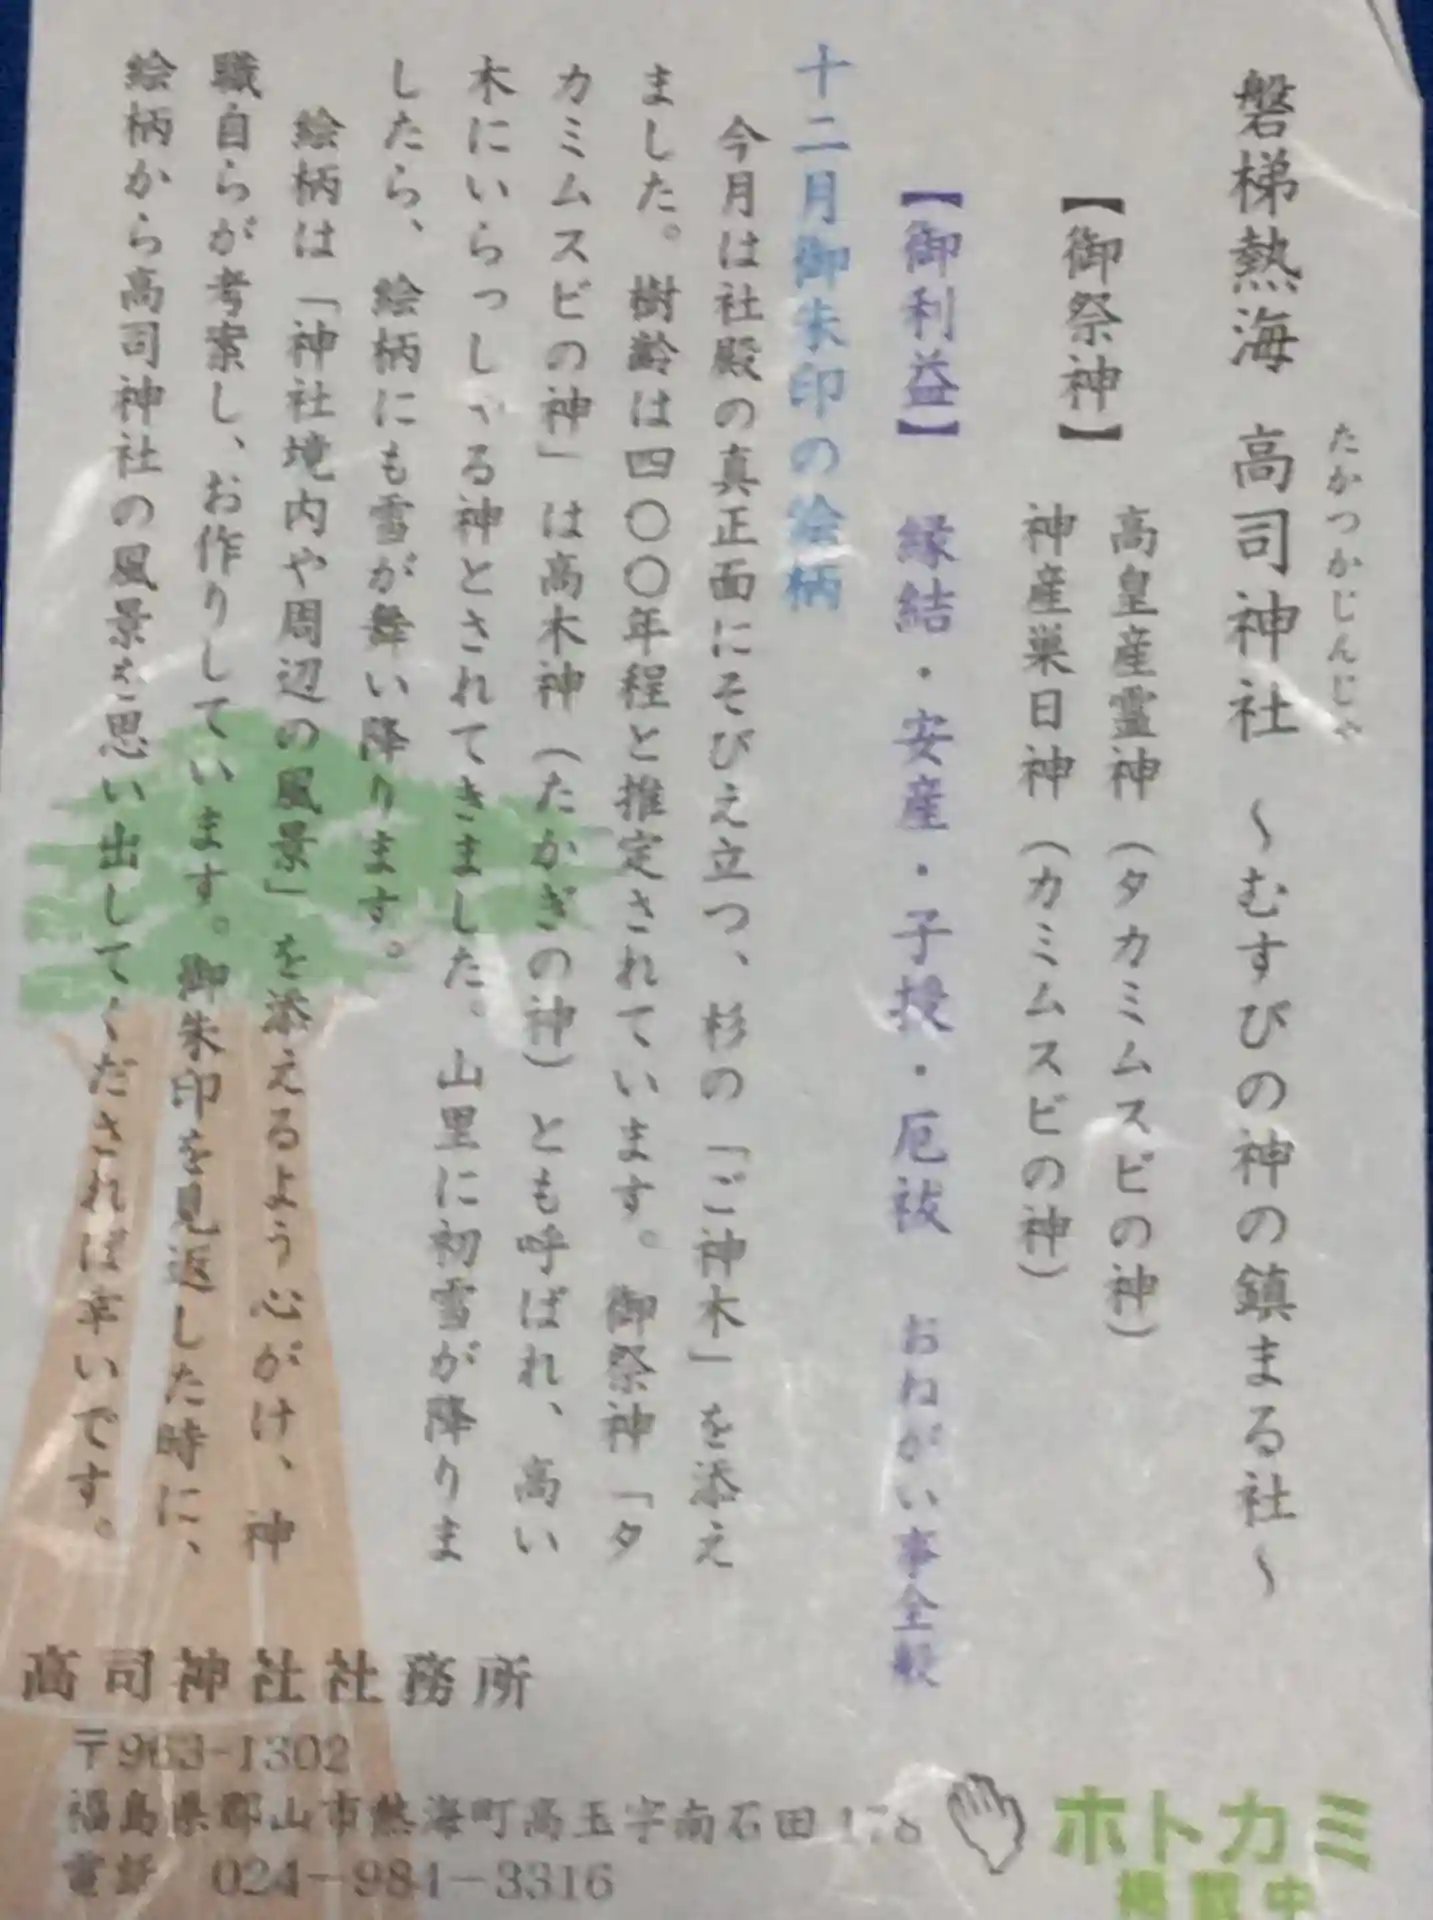 たかつかじんじゃ
磐梯熱海 高司神社 ～むすびの神の鎮まる社～
【御祭神】 高皇産霊神（タカミムスビの神）
神産巣日神（カミムスビの神）
【御利益】 縁結・安産・子授・厄祓 おねがい事全般
十二月御朱印の絵柄
今月は社殿の真正面にそびえ立つ、杉の「ご神木」を添え
ました。樹齢は四〇〇年程と推定されています。御祭神「タ
カミムスビの神」は高木神（たかぎの神）とも呼ばれ、高い
木にいらっしゃる神とされてきました。山里に初雪が降りま
したら、絵柄にも雪が舞い降ります。
絵柄は「神社境内や周辺の風景」を添えるよう心がけ、神
職自らが考案し、お作りしています。御朱印を見返した時に、
絵柄から高司神社の風景を思い出してくだされば幸いです。
高司神社社務所
〒963-1302
福島県郡山市熱海町高玉字南石田178
電話 024-984-3316
ホトカミ
掲載中